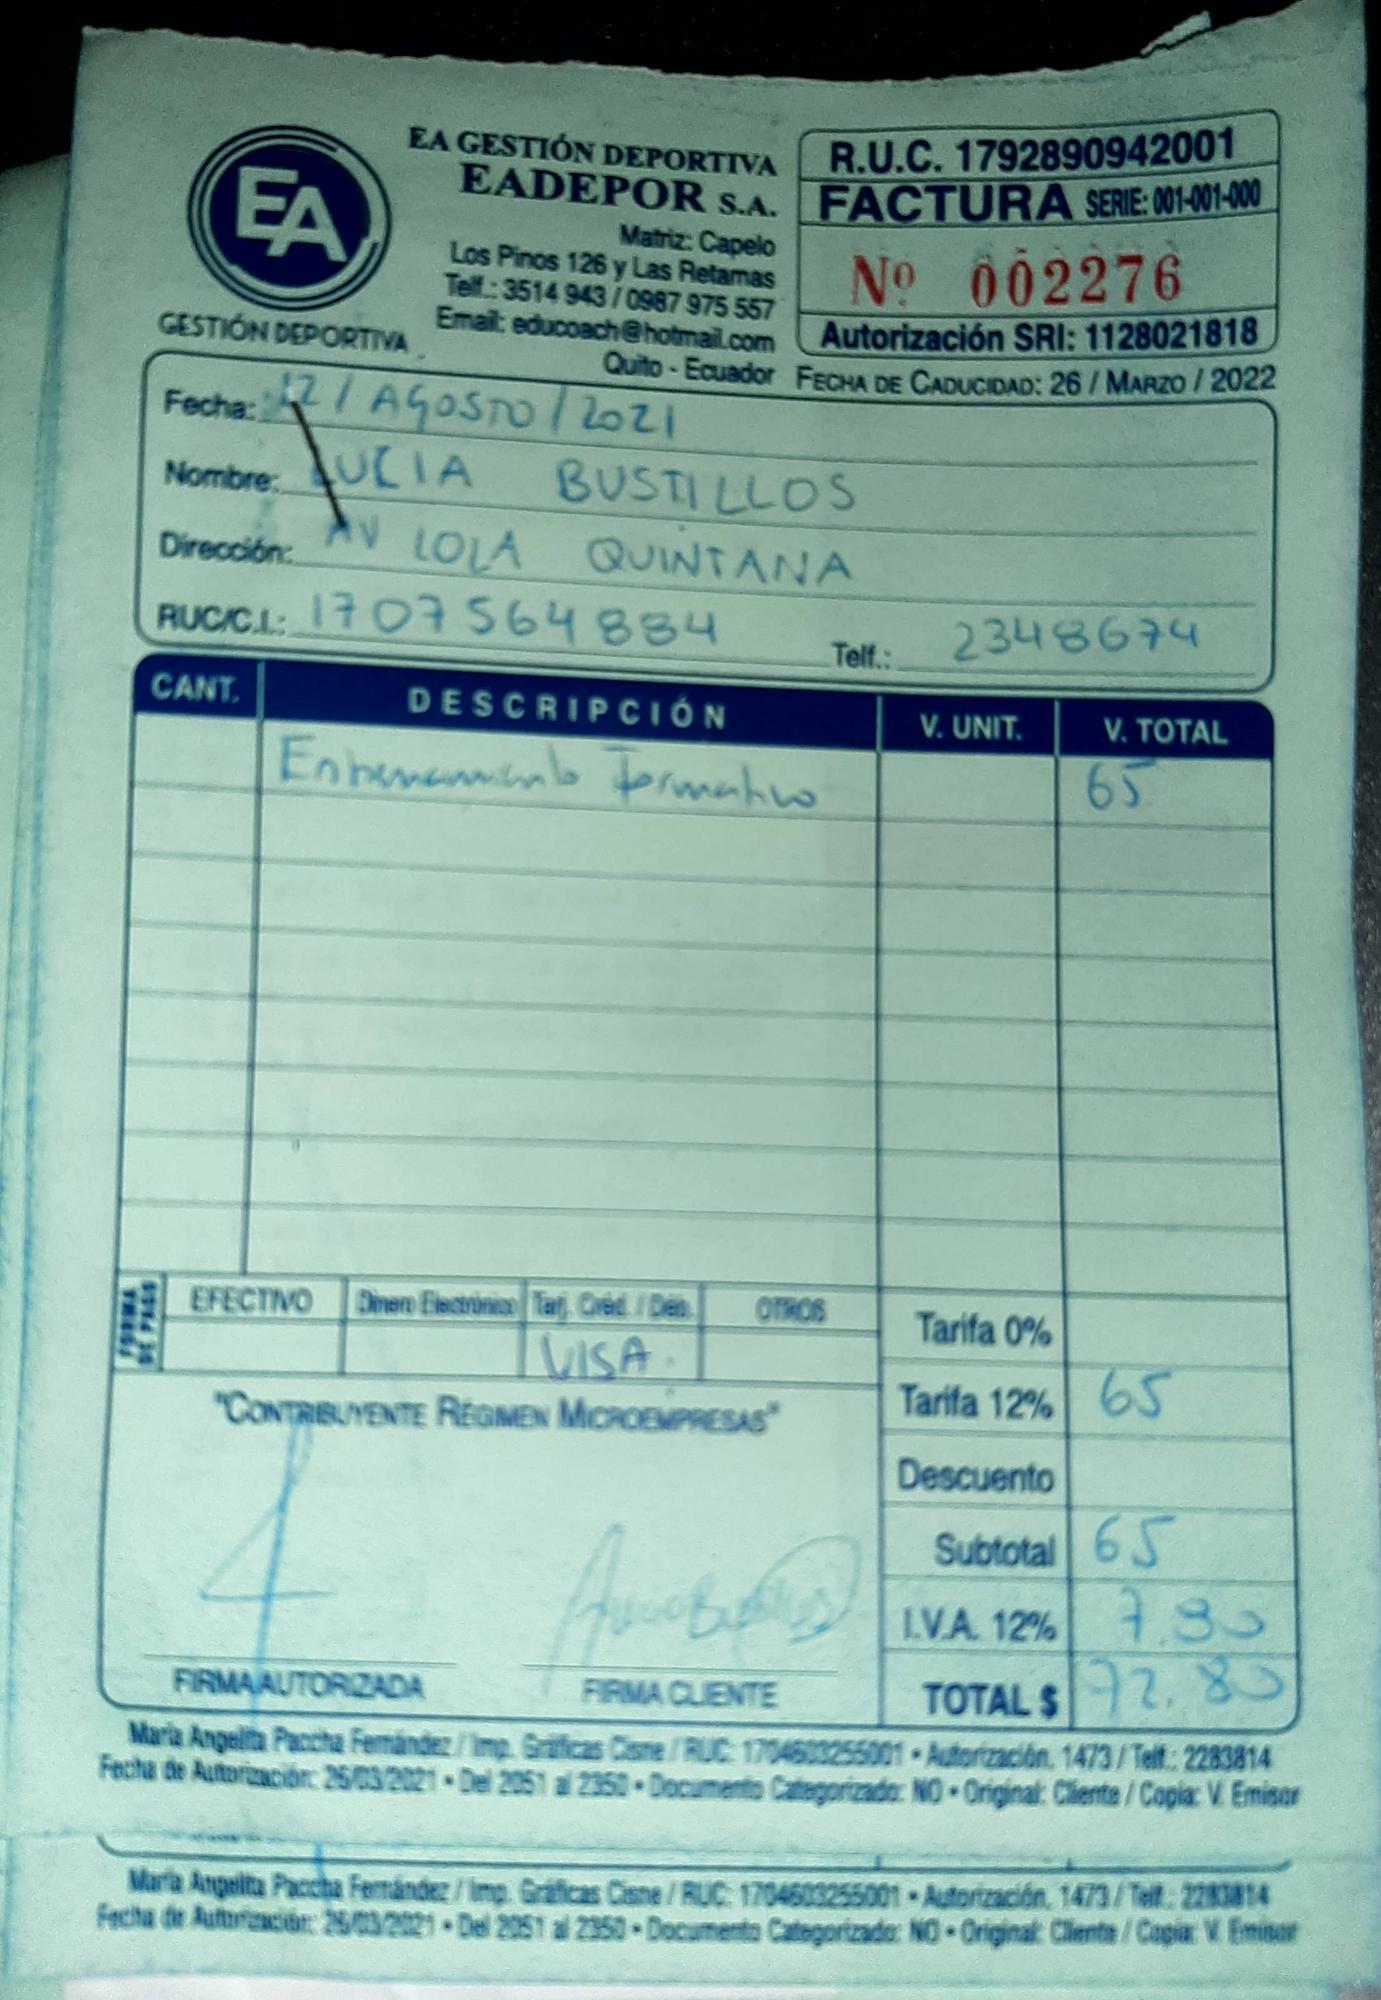 EA
GESTIÓN DEPORTIVA
EA GESTIÓN DEPORTIVA
EADEPOR S.A.
Matriz: Capelo
Los Pinos 126 y Las Retamas
Telf.: 3514 943 / 0987 975 557
Email: educoach@hotmail.com
Quito - Ecuador
R.U.C. 1792890942001
FACTURA SERIE: 001-001-000
Nº 002276
Autorización SRI: 1128021818
FECHA DE CADUCIDAD: 26 / MARZO / 2022
Fecha: 12 / AGOSTO / 2021
Nombre: LUCIA BUSTILLOS
Dirección: AV LOLA QUINTANA
RUC/C.I.: 1707564884 Telf.: 2348674
CANT. DESCRIPCIÓN V. UNIT. V. TOTAL
Entrenamiento Formativo 65
FORMA DE PAGO
EFECTIVO Dinero Electrónico Tarj. Créd. / Déb. OTROS
VISA
Tarifa 0%
Tarifa 12% 65
Descuento
Subtotal 65
I.V.A. 12% 7.80
TOTAL $ 72.80
"CONTRIBUYENTE RÉGIMEN MICROEMPRESAS"
FIRMA AUTORIZADA FIRMA CLIENTE
María Angelita Paccha Fernández / Imp. Gráficas Cisne / RUC: 1704603255001 • Autorización. 1473 / Telf.: 2283814
Fecha de Autorización: 26/03/2021 • Del 2051 al 2350 • Documento Categorizado: NO • Original: Cliente / Copia: V. Emisor
María Angelita Paccha Fernández / Imp. Gráficas Cisne / RUC: 1704603255001 • Autorización. 1473 / Telf.: 2283814
Fecha de Autorización: 26/03/2021 • Del 2051 al 2350 • Documento Categorizado: NO • Original: Cliente / Copia: V. Emisor